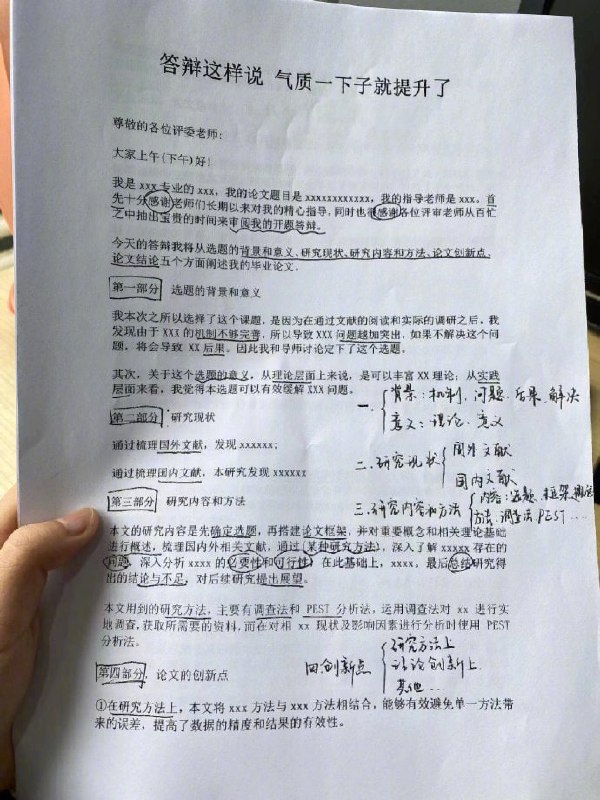 答辩这样说 气质一下子就提升了
尊敬的各位评委老师:
大家上午(下午)好!
我是 xxx 专业的 xxx, 我的论文题目是 xxxxxxxxxxxx, 我的指导老师是 xxx。首
先十分感谢老师们长期以来对我的精心指导, 同时也很感谢各位评审老师从百忙
之中抽出宝贵的时间来审阅我的开题答辩。
今天的答辩我将从选题的背景和意义、研究现状、研究内容和方法、论文创新点、
论文结论五个方面阐述我的毕业论文.
第一部分 选题的背景和意义
我本次之所以选择了这个课题, 是因为在通过文献的阅读和实际的调研之后, 我
发现由于 XXX 的机制不够完善, 所以导致 XXX 问题越加突出, 如果不解决这个问
题, 将会导致 XX 后果。因此我和导师讨论定下了这个选题。
其次, 关于这个选题的意义, 从理论层面上来说, 是可以丰富 XX 理论; 从实践
层面来看, 我觉得本选题可以有效缓解 XXX 问题。
一. 背景: 机制、问题、后果、解决
意义: 理论、意义
第二部分, 研究现状
通过梳理国外文献, 发现 xxxxxx;
通过梳理国内文献, 本研究发现 xxxxxx
二. 研究现状 国外文献
国内文献
第三部分 研究内容和方法
三. 研究内容和方法 内容: 选题、框架、
方法: 调查法 PEST ...
本文的研究内容是先确定选题, 再搭建论文框架, 并对重要概念和相关理论基础
进行概述, 梳理国内外相关文献, 通过(某种研究方法), 深入了解 xxxxx 存在的
问题, 深入分析 xxxx 的必要性和可行性, 在此基础上, xxxx, 最后总结研究得
出的结论与不足, 对后续研究提出展望。
本文用到的研究方法, 主要有调查法和 PEST 分析法, 运用调查法对 xx 进行实
地调查, 获取所需要的资料, 而在对相 xx 现状及影响因素进行分析时使用 PEST
分析法。
第四部分, 论文的创新点
四. 创新点 研究方法上
结论创新上
其他...
①在研究方法上, 本文将 xxx 方法与 xxx 方法相结合, 能够有效避免单一方法带
来的误差, 提高了数据的精度和结果的有效性。